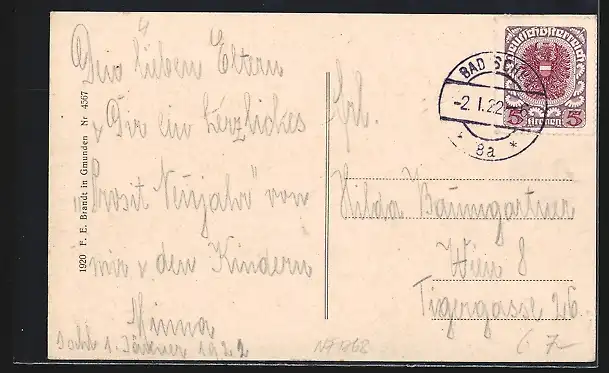 Den lieben Eltern
u. Dir ein herzliches
"Prosit Neujahr" von
mir u. den Kindern
Minna
1. Jänner 1922
1920 F. E. Brandt in Gmunden Nr 4567
Deutschösterreich
5 Kronen 5
BAD
-2.I.22
* 8a *
Frl.
Hilda Baumgartner
Wien 8
Tigergasse 26.
7-